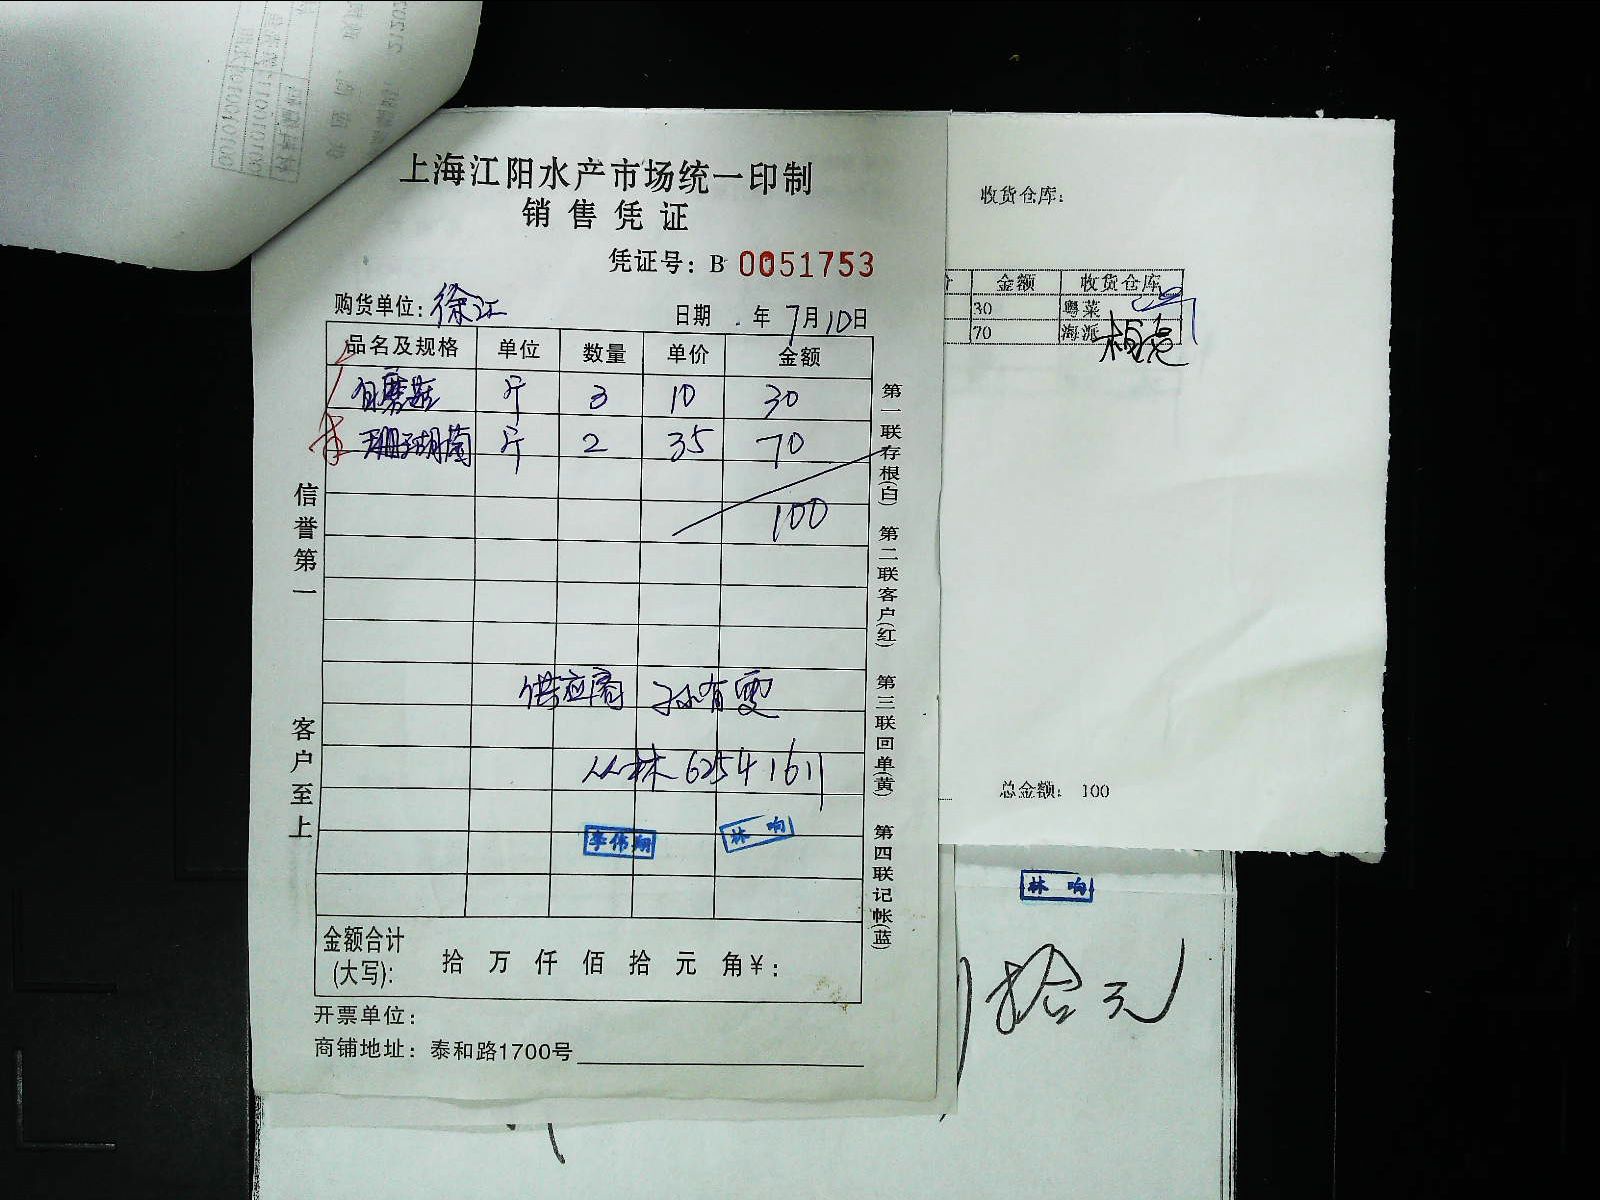 上海江阳水产市场统一印制
销售凭证
凭证号：B 0051753
购货单位：徐江 日期 年7月10日
品名及规格 单位 数量 单价 金额
白蘑菇 斤 3 10 30
珊瑚菌 斤 2 35 70
100
供应商 孙有雯
丛林 62541611
李伟翔 林响
金额合计(大写)： 拾 万 仟 佰 拾 元 角¥：
开票单位：
商铺地址：泰和路1700号
信誉第一 客户至上
第一联存根(白) 第二联客户(红) 第三联回单(黄) 第四联记帐(蓝)
收货仓库：
金额 收货仓库
30 粤菜
70 海派
总金额： 100
林响
拾元